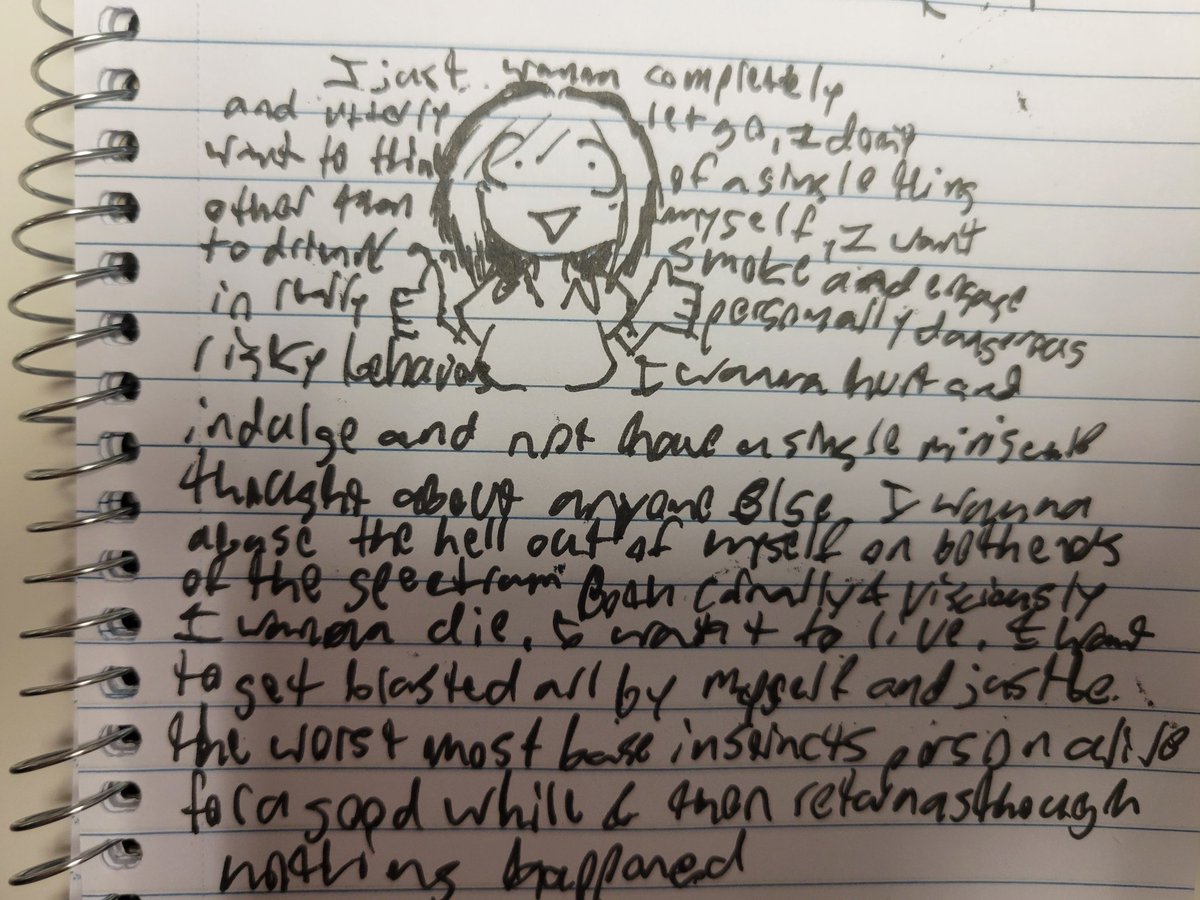 I just wanna completely
and utterly let go, I don't
want to think of a single thing
other than myself, I want
to drink an smoke and engage
in really personally dangerous
risky behavior I wanna hurt and
indulge and not have a single miniscule
thought about anyone else, I wanna
abuse the hell out of myself on both ends
of the spectrum Both carnally & visciously
I wanna die, I want to live. I want
to get blasted all by myself and just be
the worst most base instincts person alive
for a good while & then return as though
nothing happened